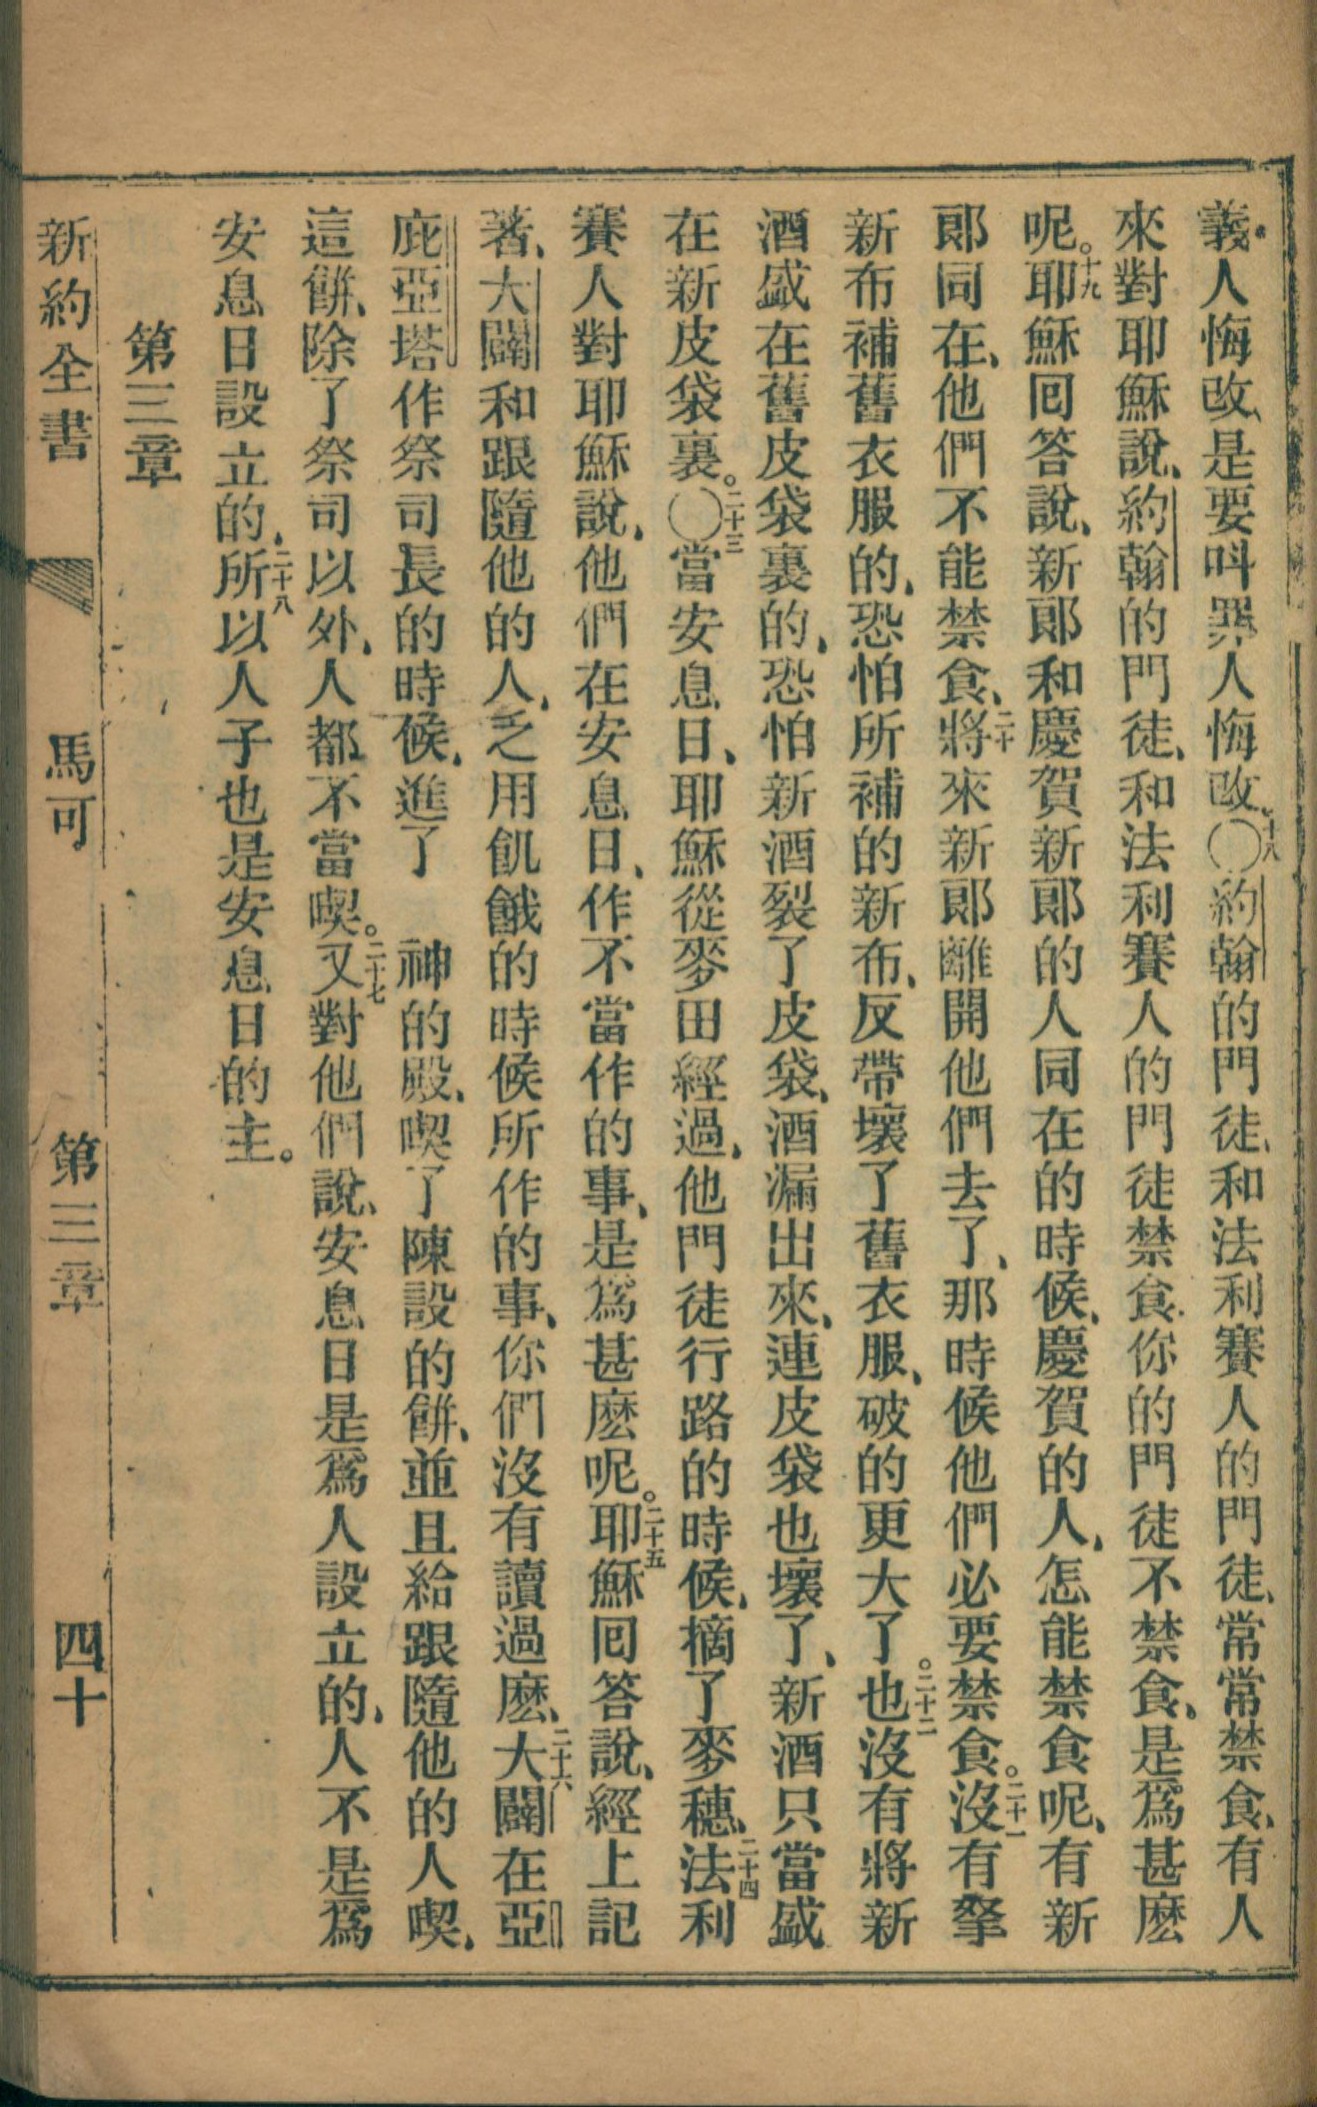 義人悔改、是要呌罪人悔改、十八〇約翰的門徒、和法利賽人的門徒、常常禁食、有人
來對耶穌說、約翰的門徒、和法利賽人的門徒禁食、你的門徒不禁食、是爲甚麽
呢。十九耶穌囘答說、新郞和慶賀新郞的人同在的時候、慶賀的人、怎能禁食呢、有新
郞同在、他們不能禁食、二十將來新郞離開他們去了、那時候他們必要禁食。二十一沒有拏
新布補舊衣服的、恐怕所補的新布、反帶壞了舊衣服、破的更大了。二十二也沒有將新
酒盛在舊皮袋裏的、恐怕新酒裂了皮袋、酒漏出來、連皮袋也壞了、新酒只當盛
在新皮袋裏。二十三〇當安息日、耶穌從麥田經過、他門徒行路的時候、摘了麥穗、二十四法利
賽人對耶穌說、他們在安息日、作不當作的事、是爲甚麽呢。二十五耶穌囘答說、經上記
著、大闢和跟隨他的人、乏用飢餓的時候所作的事、你們沒有讀過麽、二十六大闢在亞
庇亞塔作祭司長的時候、進了　神的殿、喫了陳設的餅、並且給跟隨他的人喫、
這餅、除了祭司以外、人都不當喫。二十七又對他們說、安息日是爲人設立的、人不是爲
安息日設立的、二十八所以人子也是安息日的主。
第三章
新約全書　馬可　第三章　四十